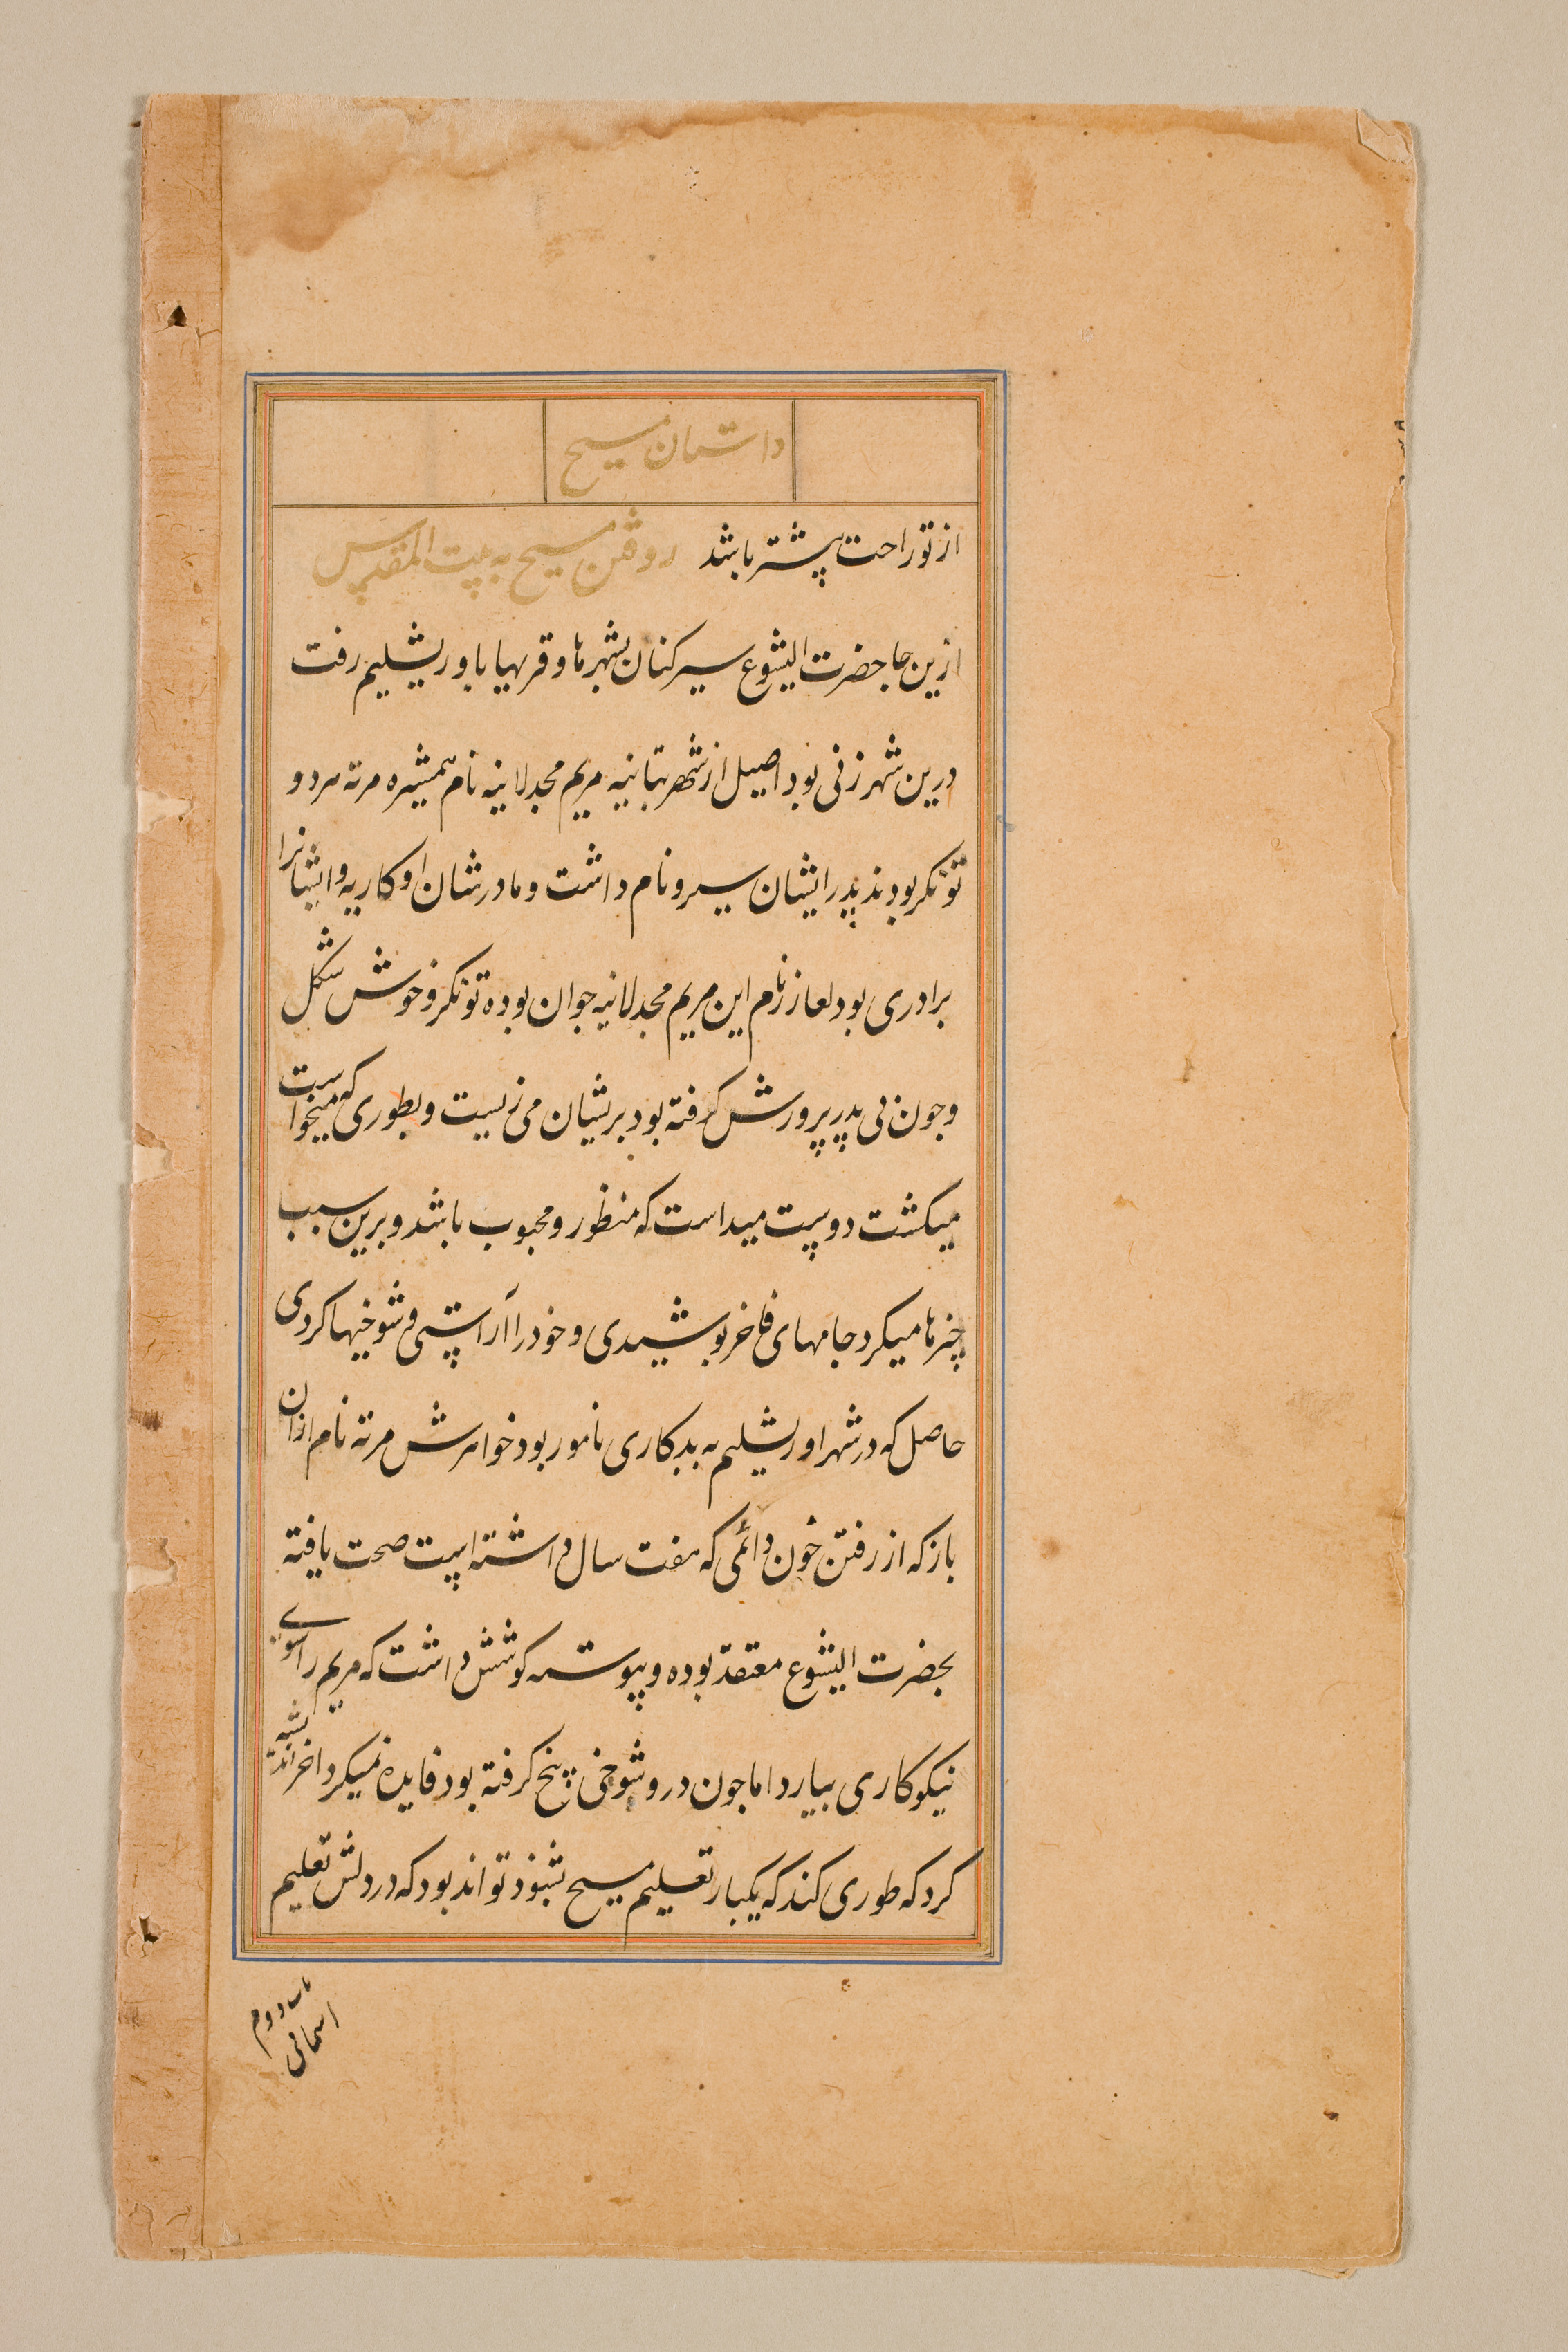 داستان مسیح
از تو راحت پیشتر باشد روفتن مسیح به بیت المقدس
ازین جا حضرت الیشوع سیر کنان بشهرها و قریها باوریشلیم رفت
درین شهر زنی بود اصیل از شهر بتانیه مریم مجدلانیه نام همشیره مرته هر دو
تونکر بودند پدر ایشان سیرو نام داشت و مادرشان اوکاریه و ایشانرا
برادری بود لعازر نام این مریم مجدلانیه جوان بوده تونکر و خوش شکل
و جون بی پدر پرورش کرفته بود بریشان می زیست و بطوری که میخواست
میکشت دوست میداست که منظور و محبوب باشد و برین سبب
چیزها میکرد جامهای فاخر بوشیدی و خود را آراستی و شوخیها کردی
حاصل که در شهر اوریشلیم به بدکاری نامور بود خواهرش مرته نام ازان
باز که از رفتن خون دائمی که هفت سال داشته است صحت یافته
بحضرت الیشوع معتقد بوده و پیوسته کوشش داشت که مریم را سوی
نیکوکاری بیارد اما جون درو شوخی پنخ کرفته بود فایده نمیکرد اخر اندیشه
کرد که طوری کند که یکبار تعلیم مسیح بشنود تواند بود که در دلش تعلیم
باب دوم
اسمانی